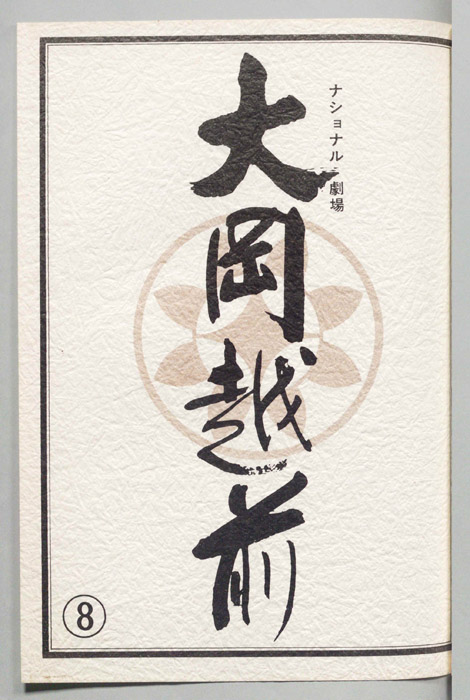 ナショナル劇場
大岡越前
⑧